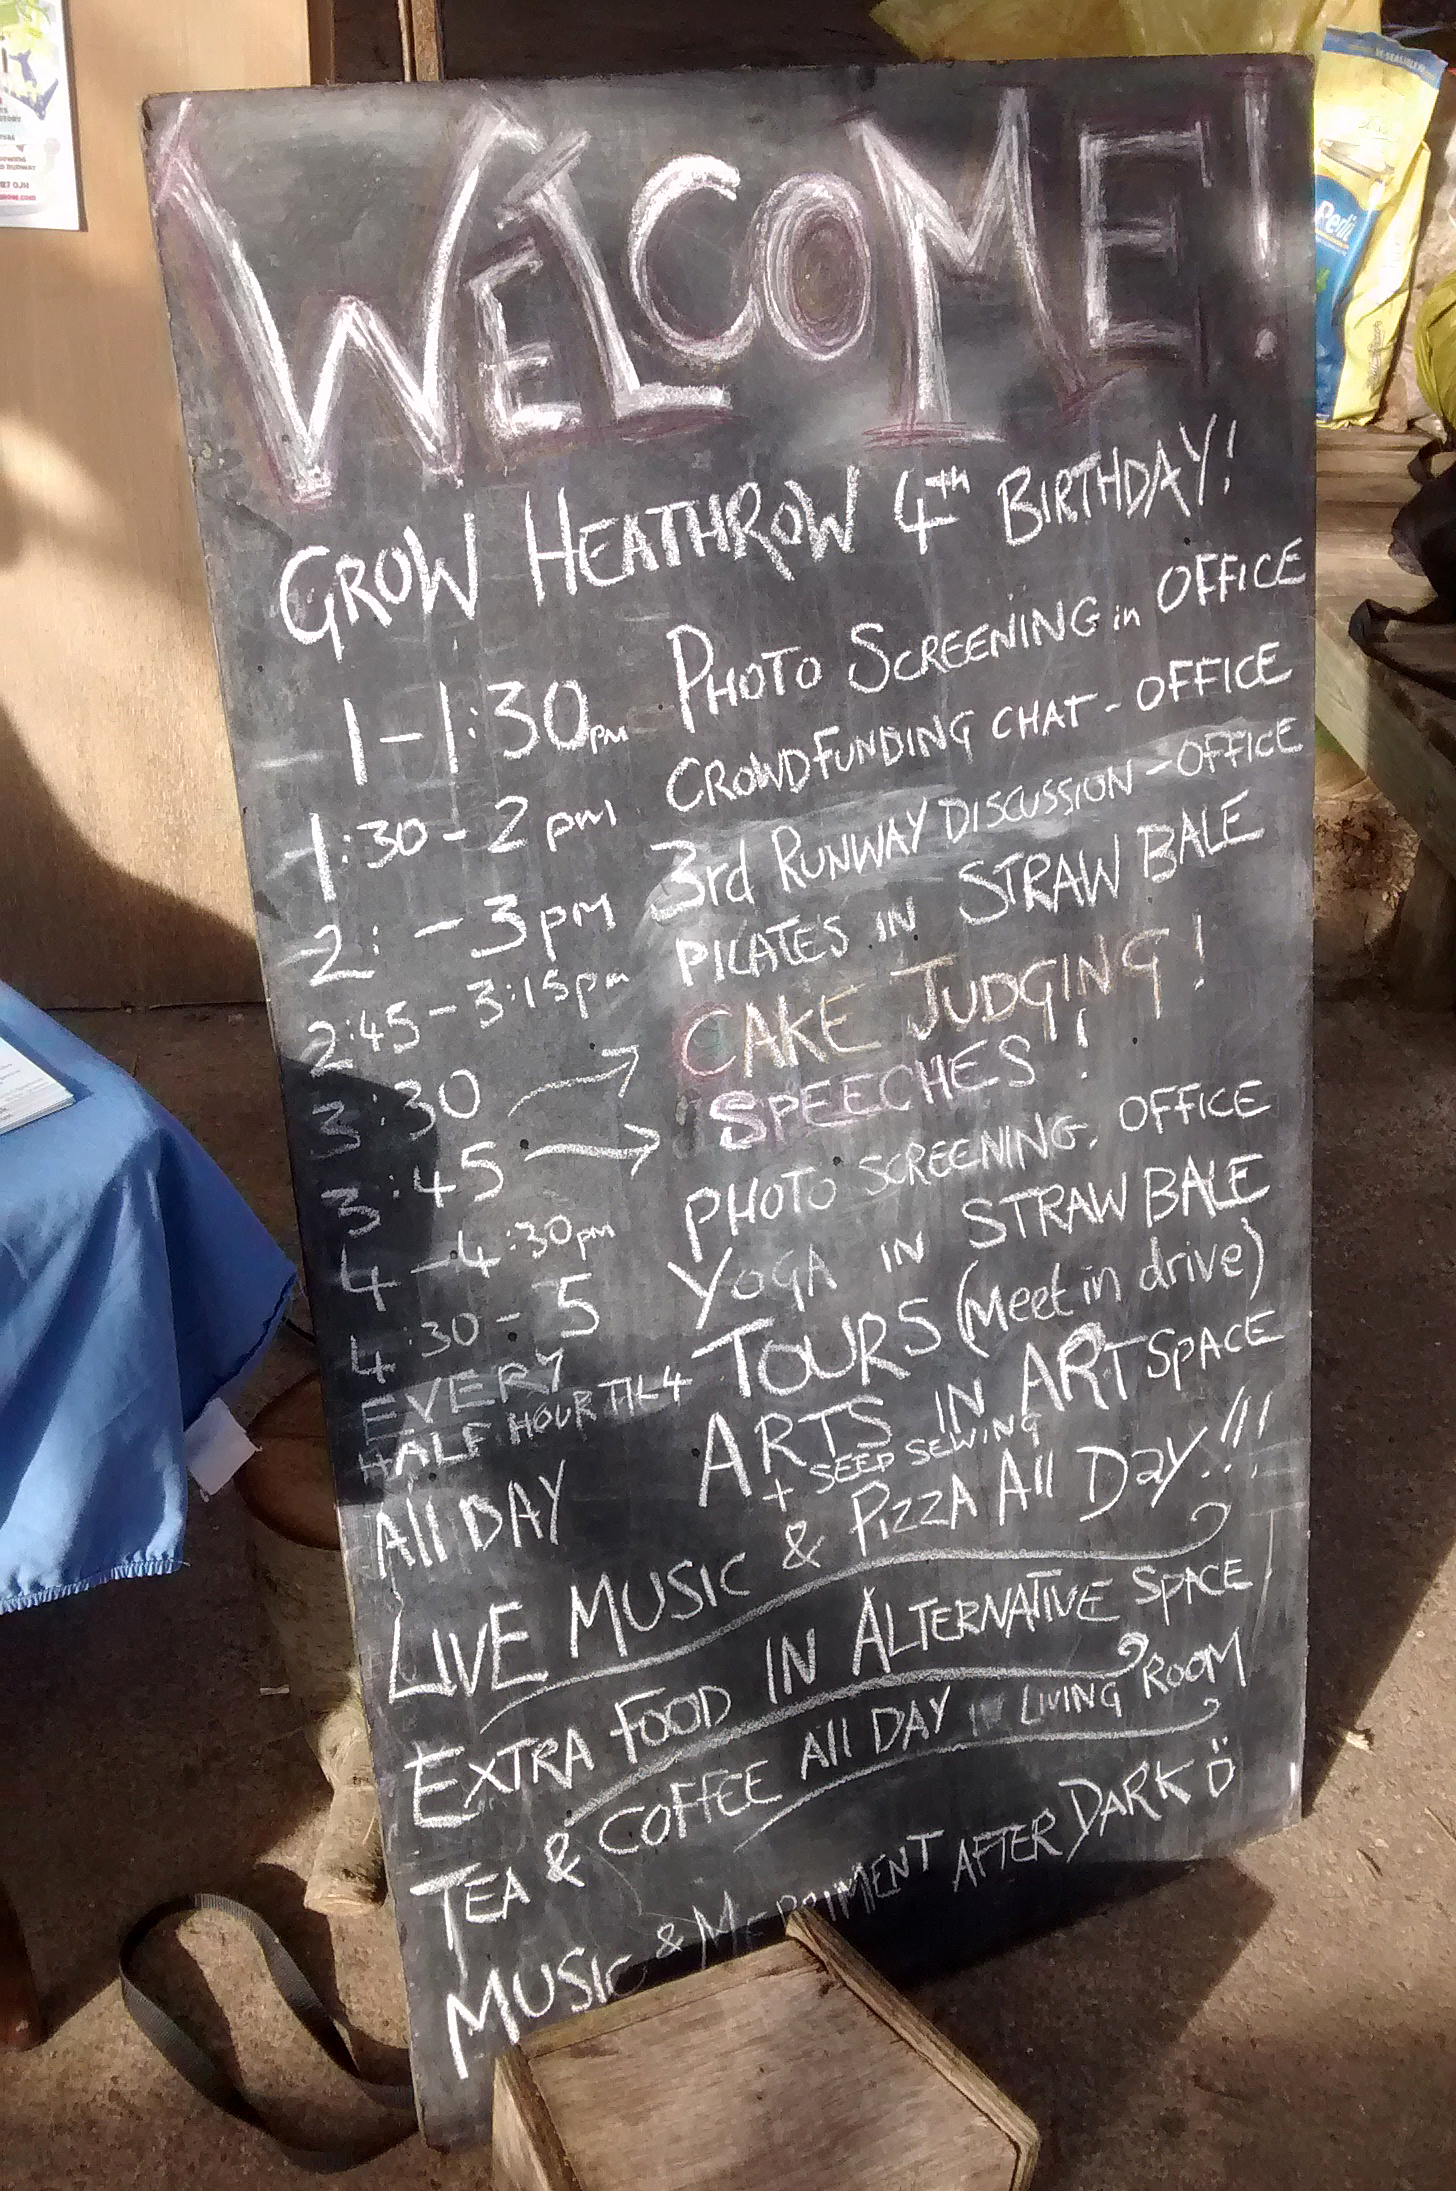 WELCOME!
GROW HEATHROW 4th BIRTHDAY!
1-1:30pm PHOTO SCREENING in OFFICE
1:30-2pm CROWDFUNDING CHAT - OFFICE
2: - 3pm 3rd RUNWAY DISCUSSION - OFFICE
2:45-3:15pm PILATES IN STRAW BALE
3:30 → CAKE JUDGING!
3:45 → SPEECHES!
4-4:30pm PHOTO SCREENING, OFFICE
4:30-5 YOGA IN STRAW BALE
EVERY HALF HOUR TIL 4 TOURS (Meet in drive)
All DAY ARTS IN ART SPACE
+ SEED SEWING
LIVE MUSIC & PIZZA All Day!!!
EXTRA FOOD IN ALTERNATIVE SPACE
TEA & COFFEE All DAY LIVING ROOM
MUSIC & MERRIMENT AFTER DARK
Persil